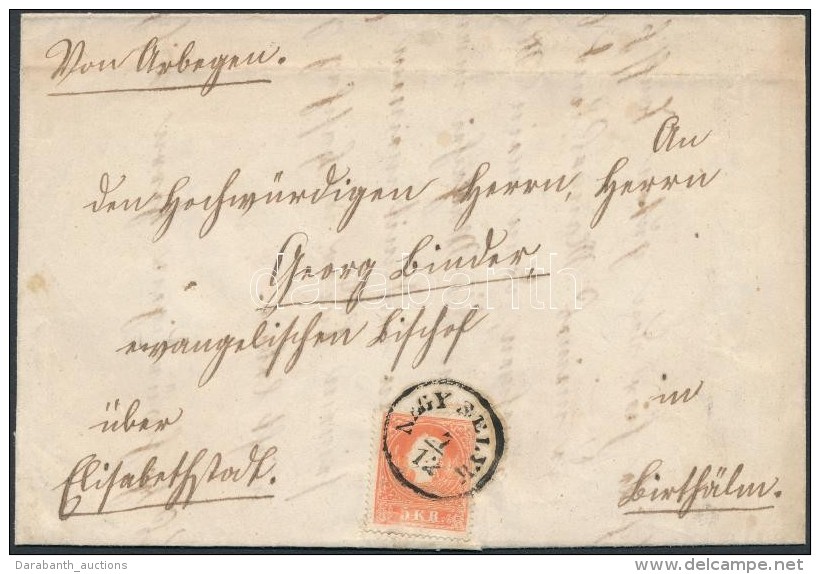 Von Arbegen.
An
den Hochwürdigen Herrn, Herrn
Georg Binder,
darabanth
evangelischen Bischof
in
über
Elisabethstadt.
Birthälm.
NAGY SELYK
7/12
5 KR.
Darabanth_auctions
delcampe.net